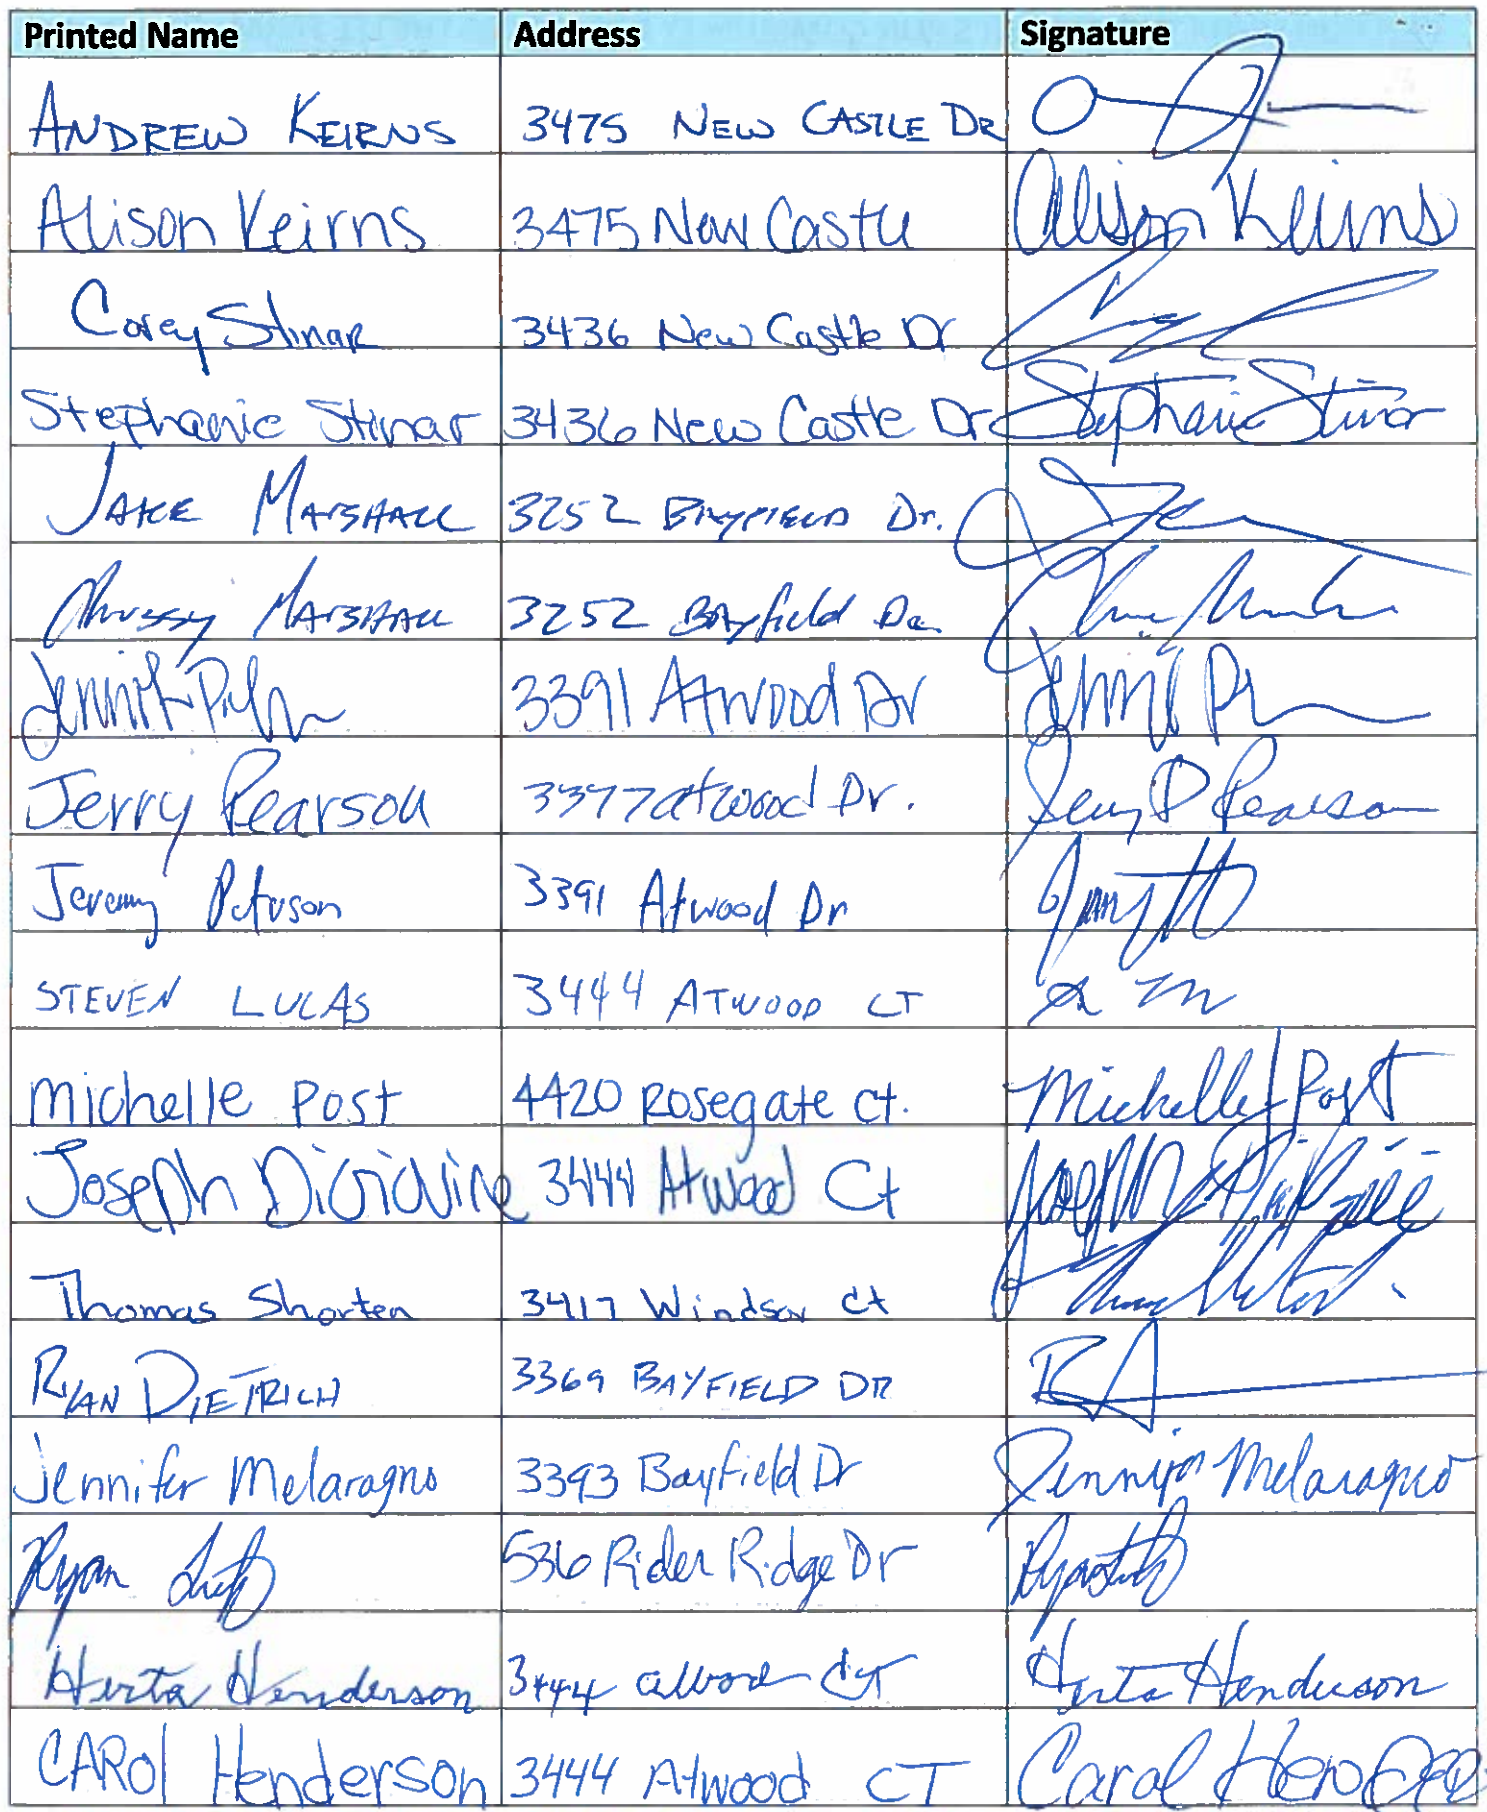 Printed Name Address Signature
ANDREW KEIRNS 3475 NEW CASTLE DR
Alison Keirns 3475 New Castle Alison Keirns
Corey Stinar 3436 New Castle Dr
Stephanie Stinar 3436 New Castle Dr Stephanie Stinar
JAKE MARSHALL 3252 BAYFIELD Dr.
Chrissy MARSHALL 3252 Bayfield Dr.
3391 Atwood Dr
Jerry Pearson 3377 atwood Dr. Jerry D Pearson
Jeremy Peterson 3391 Atwood Dr
STEVEN LUCAS 3444 ATWOOD CT
Michelle Post 4420 Rosegate Ct. Michelle Post
Joseph 3444 Atwood Ct
Thomas Shorten 3417 Windsor Ct
RYAN DIETRICH 3369 BAYFIELD DR
Jennifer Melaragno 3393 Bayfield Dr Jennifer Melaragno
Ryan 536 Rider Ridge Dr
Herta Henderson 3444 CT Herta Henderson
CAROl Henderson 3444 Atwood CT Carol